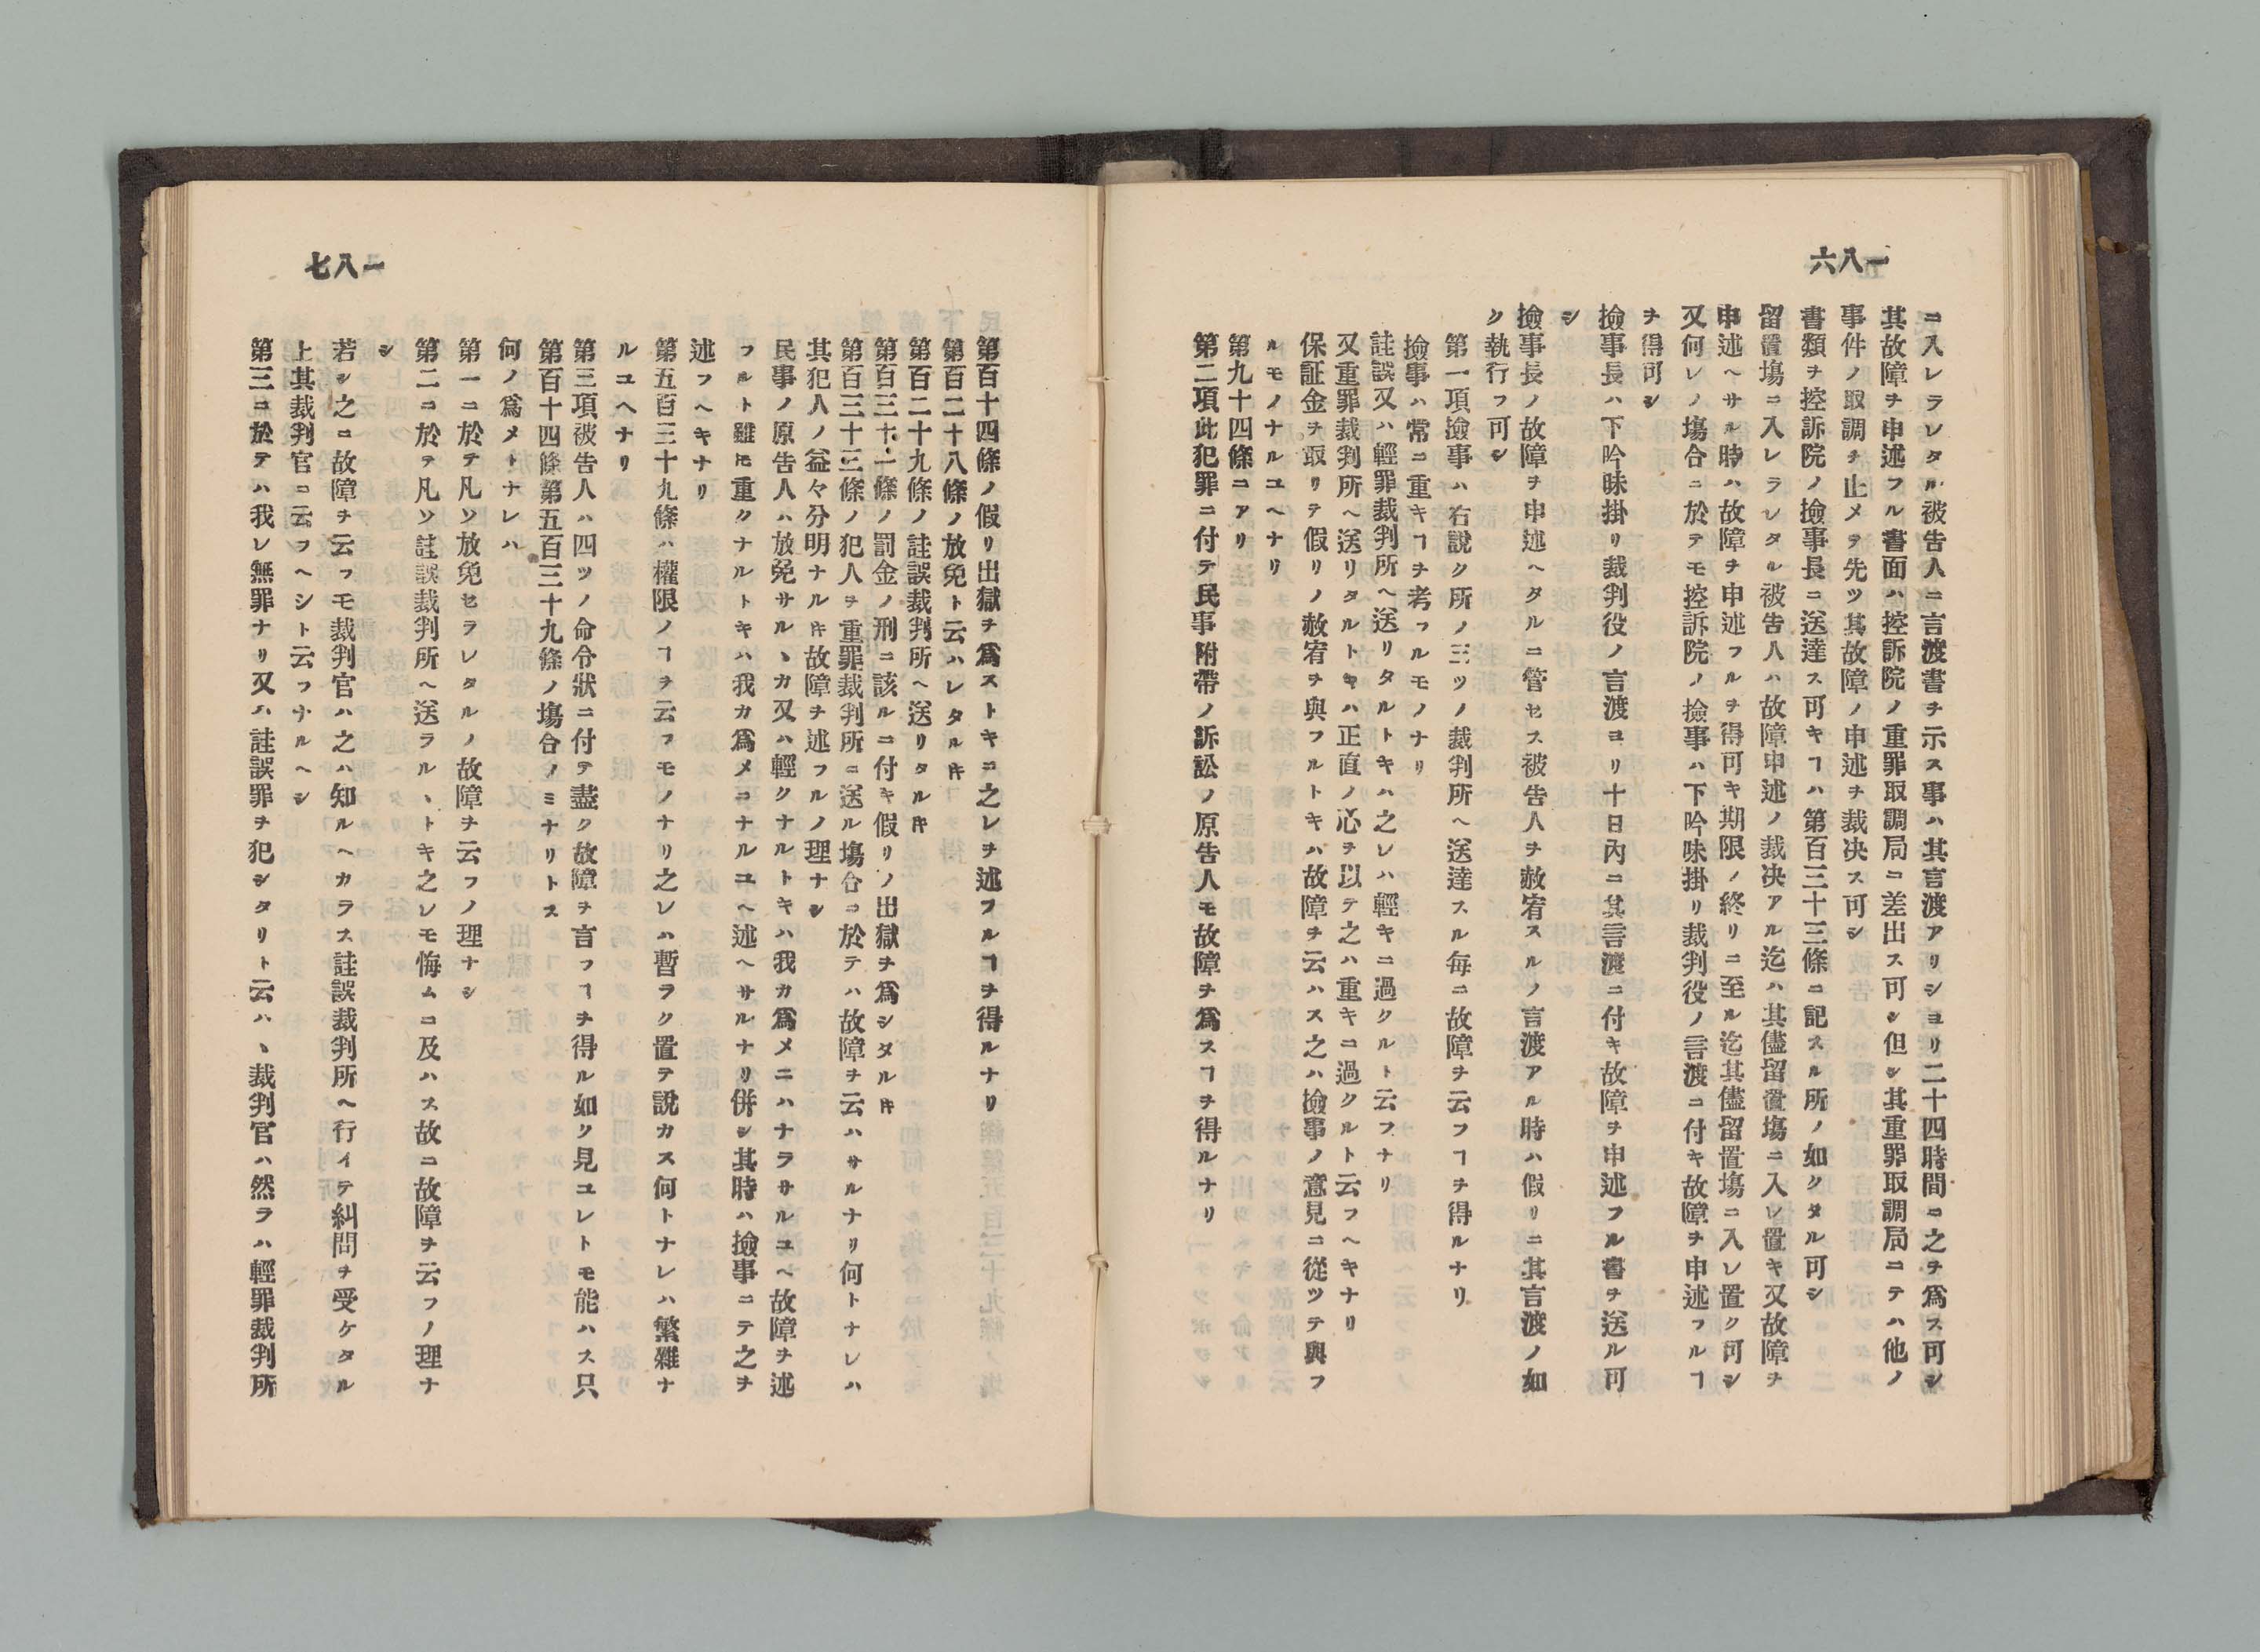 一八六
ニ入レラレタル被告人ニ言渡書ヲ示ス事ハ其言渡アリシヨリ二十四時間ニ之ヲ爲ス可シ
其故障ヲ申述フル書面ハ控訴院ノ重罪取調局ニ差出ス可シ但シ其重罪取調局ニテハ他ノ
事件ノ取調ヲ止メテ先ツ其故障ノ申述ヲ裁决ス可シ
書類ヲ控訴院ノ撿事長ニ送達ス可キヿハ第百三十三條ニ記スル所ノ如クタル可シ
留置塲ニ入レラレタル被告人ハ故障申述ノ裁决アル迄ハ其儘留置塲ニ入レ置キ又故障ヲ
申述ヘサル時ハ故障ヲ申述フルヲ得可キ期限ノ終リニ至ル迄其儘留置塲ニ入レ置ク可シ
又何レノ塲合ニ於テモ控訴院ノ撿事ハ下吟味掛リ裁判役ノ言渡ニ付キ故障ヲ申述フルヿ
ヲ得可シ
撿事長ハ下吟味掛リ裁判役ノ言渡ヨリ十日内ニ其言渡ニ付キ故障ヲ申述フル書ヲ送ル可
シ
撿事長ノ故障ヲ申述ヘタルニ管セス被告人ヲ赦宥スルノ言渡アル時ハ假リニ其言渡ノ如
ク執行フ可シ
第一項撿事ハ右說ク所ノ三ツノ裁判所ヘ送達スル毎ニ故障ヲ云フヿヲ得ルナリ
撿事ハ常ニ重キヿヲ考フルモノナリ
註誤又ハ輕罪裁判所ヘ送リタルトキハ之レハ輕キニ過クルト云フナリ
又重罪裁判所ヘ送リタルトキハ正直ノ心ヲ以テ之ハ重キニ過クルト云フヘキナリ
保証金ヲ取リテ假リノ赦宥ヲ與フルトキハ故障ヲ云ハス之ハ撿事ノ意見ニ從ツテ與フ
ルモノナルユヘナリ
第九十四條ニアリ
第二項此犯罪ニ付テ民事附帶ノ訴訟ノ原告人モ故障ヲ爲スヿヲ得ルナリ
一八七
第百十四條ノ假リ出獄ヲ爲ストキニ之レヲ述フルヿヲ得ルナリ
第百二十八條ノ放免ト云ハレタルキ
第百二十九條ノ註誤裁判所ヘ送リタルキ
第百三十一條ノ罰金ノ刑ニ該ルニ付キ假リノ出獄ヲ爲シタルキ
第百三十三條ノ犯人ヲ重罪裁判所ニ送ル塲合ニ於テハ故障ヲ云ハサルナリ何トナレハ
其犯人ノ益々分明ナルキ故障ヲ述フルノ理ナシ
民事ノ原告人ハ放免サルヽカ又ハ輕クナルトキハ我カ爲メニハナラサルユヘ故障ヲ述
フルト雖𪜈重クナルトキハ我カ爲メニナルユヘ述ヘサルナリ併シ其時ハ撿事ニテ之ヲ
述フヘキナリ
第五百三十九條ハ權限ノヿヲ云フモノナリ之レハ暫ラク置テ說カス何トナレハ繁雜ナ
ルユヘナリ
第三項被告人ハ四ツノ命令狀ニ付テ盡ク故障ヲ言フヿヲ得ル如ク見ユレトモ能ハス只
第百十四條第五百三十九條ノ塲合ノミナリトス
何ノ爲メトナレハ
第一ニ於テ凡ソ放免セラレタルノ故障ヲ云フノ理ナシ
第二ニ於テ凡ソ註誤裁判所ヘ送ラルヽトキ之レモ悔ムニ及ハス故ニ故障ヲ云フノ理ナ
シ
若シ之ニ故障ヲ云フモ裁判官ハ之ハ知ルヘカラス註誤裁判所ヘ行イテ糾問ヲ受ケタル
上其裁判官ニ云フヘシト云フナルヘシ
第三ニ於テハ我レ無罪ナリ又ハ註誤罪ヲ犯シタリト云ハヽ裁判官ハ然ラハ輕罪裁判所